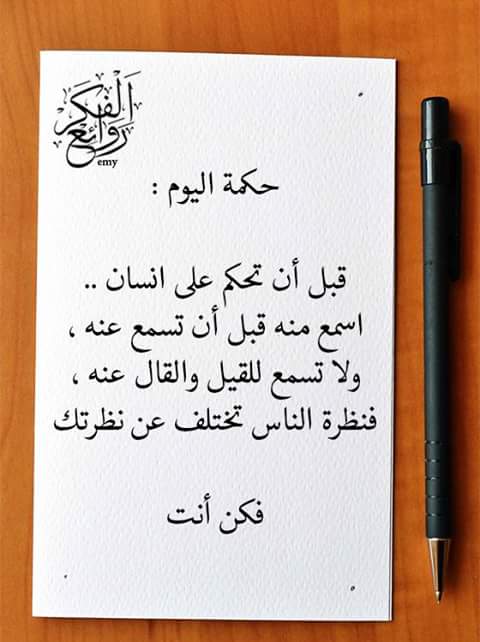 روائع الفكر
emy
حكمة اليوم :
قبل أن تحكم على انسان ..
اسمع منه قبل أن تسمع عنه ،
ولا تسمع للقيل والقال عنه ،
فنظرة الناس تختلف عن نظرتك
فكن أنت